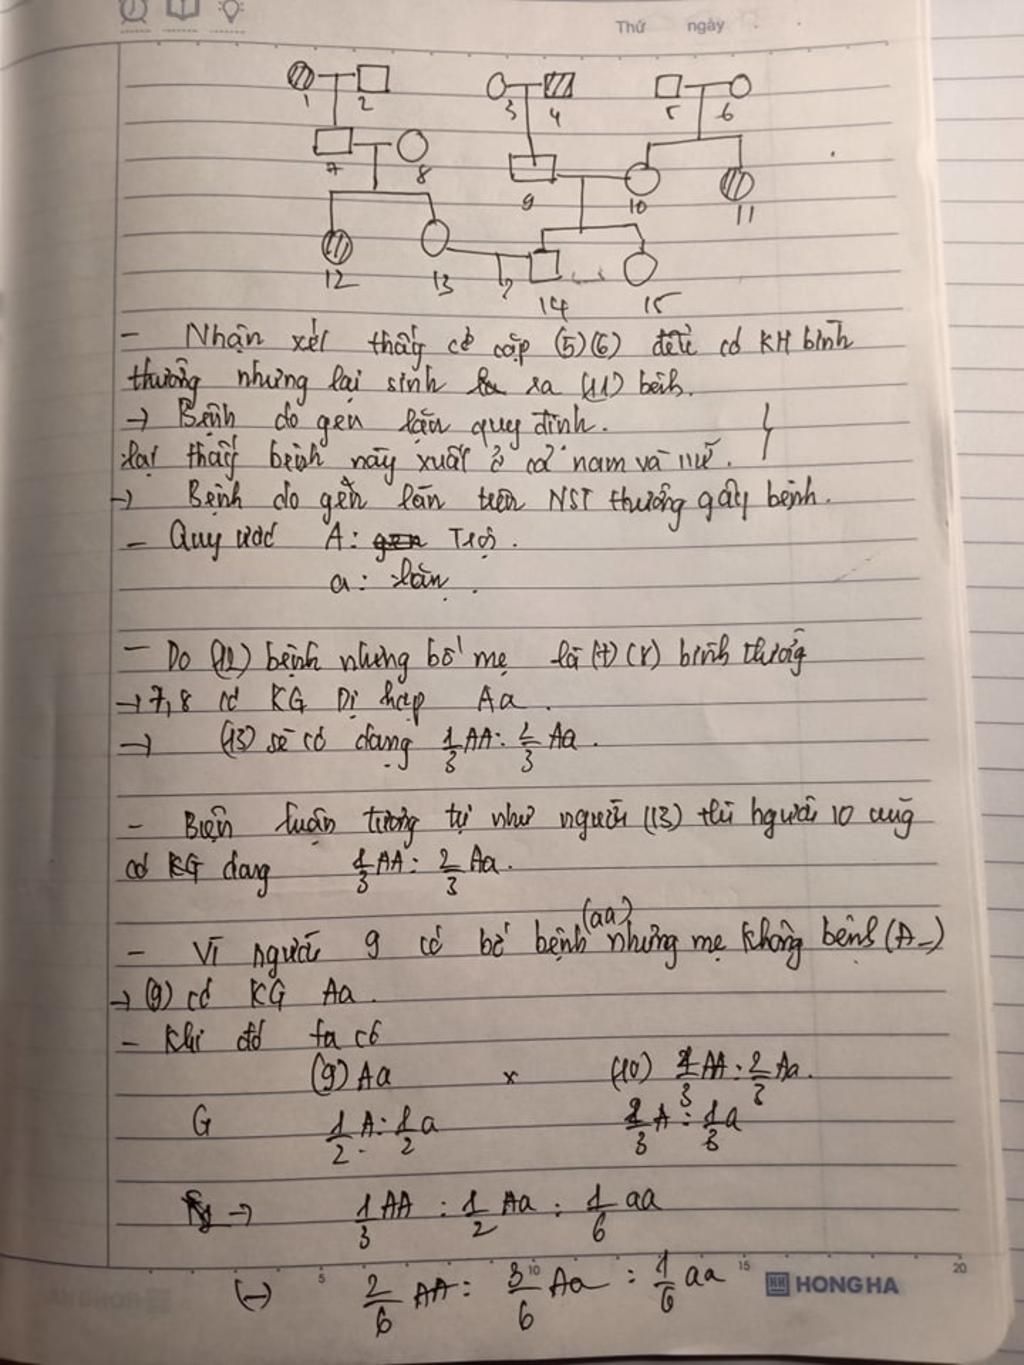 Thứ ngày
1 2 3 4 5 6
7 8 9 10 11
12 13 ? 14 15
- Nhận xét thấy có cặp (5)(6) đều có KH bình
thường nhưng lại sinh ra (11) bệnh.
→ Bệnh do gen lặn quy định.
lại thấy bệnh này xuất ở cả nam và nữ.
→ Bệnh do gen lặn trên NST thường gây bệnh.
- Quy ước A: gen Trội.
a: lặn.
- Do (12) bệnh nhưng bố mẹ là (7) (8) bình thường
→ 7,8 có KG Dị hợp Aa.
→ (13) sẽ có dạng 1/3 AA : 2/3 Aa.
- Biện luận tương tự như người (13) thì người 10 cũng
có KG dạng 1/3 AA : 2/3 Aa.
- Vì người 9 có bố bệnh (aa) nhưng mẹ không bệnh (A_)
→ (9) có KG Aa.
- Khi đó ta có
(9) Aa x (10) 1/3 AA : 2/3 Aa.
G 1/2 A : 1/2 a 2/3 A : 1/3 a
→ 1/3 AA : 1/2 Aa : 1/6 aa
(→) 2/6 AA : 3/6 Aa : 1/6 aa
5 10 15 20
HH HONG HA